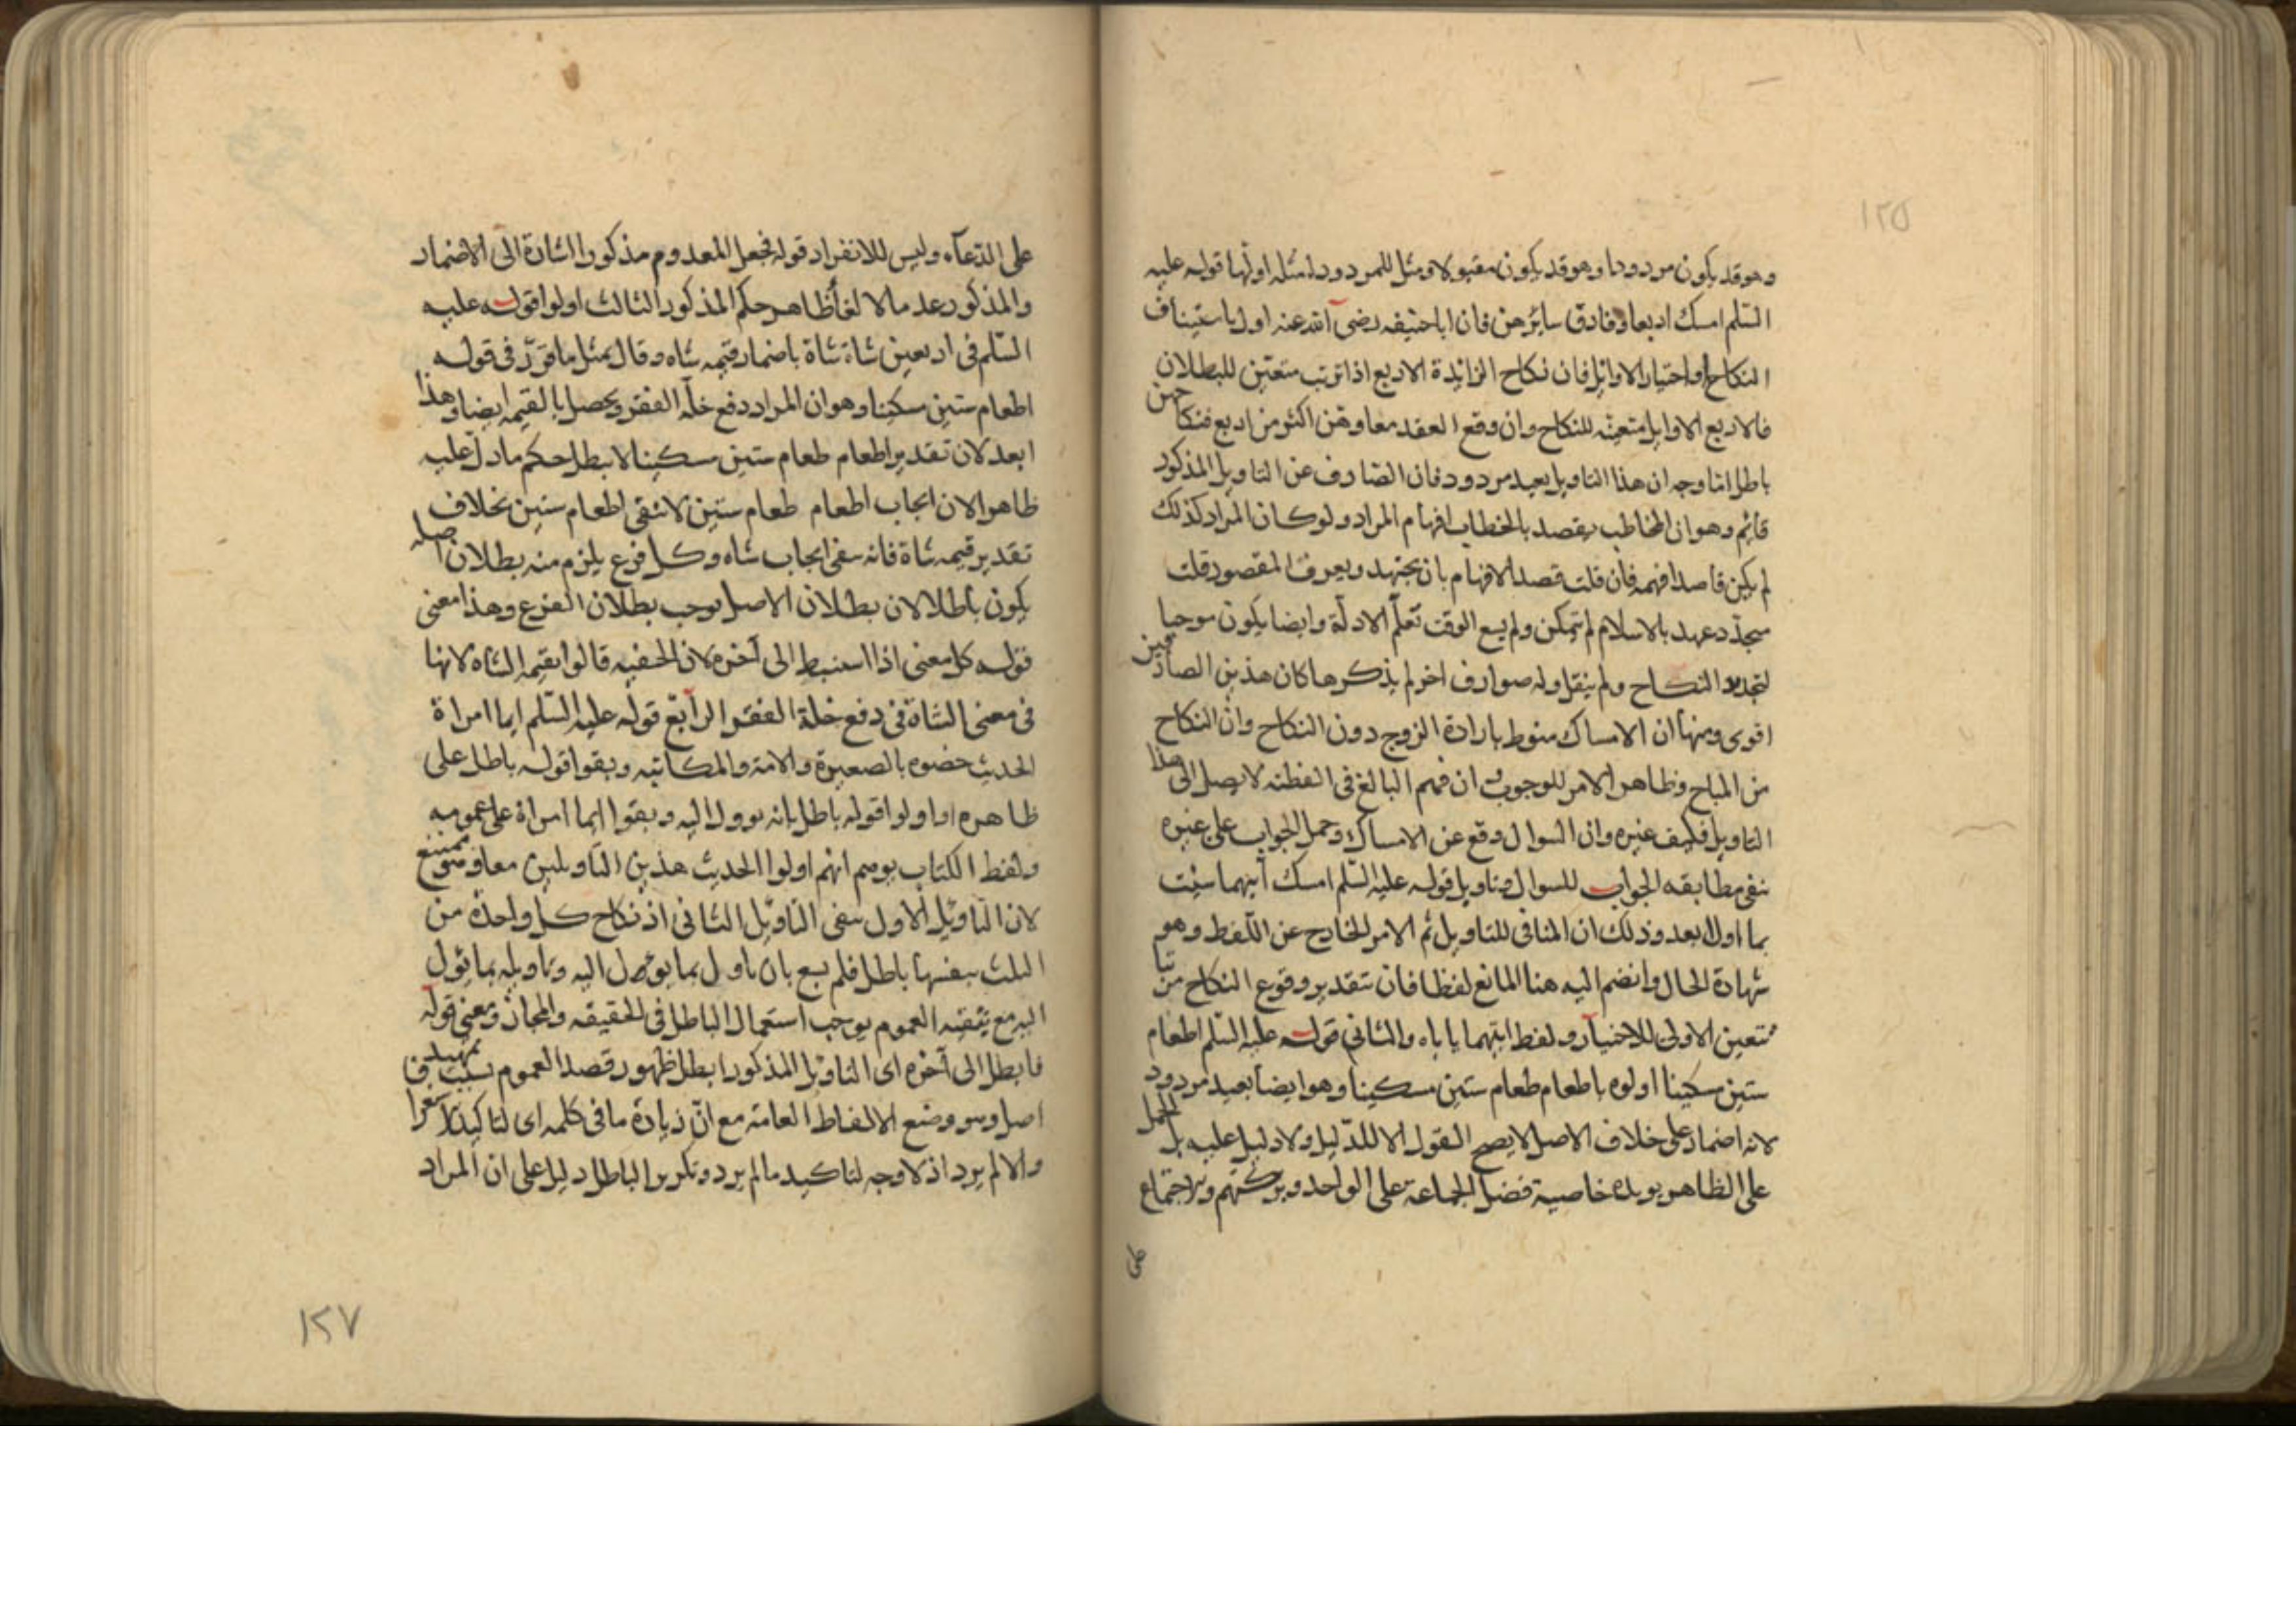 ١٢٥
وهو قد يكون مردودا وهو قد يكون مقبولا ومثل للمردود امثله اولها قوله عليه
السّلم امسك اربعا وفارق سائرهن فان ابا حنيفه رضى الله عنه اول باستيناف
النكاح او اختيار الاوائل فان نكاح الزائدة الاربع اذا ترتب متعيّن للبطلان
فالاربع الاوايل متعينه للنكاح وان وقع العقد معا وهن اكثر من اربع فنكاحهن
باطل اما وجه ان هذا التاويل بعيد مردود فان الصارف عن التاويل المذكور
قائم وهو ان المخاطب يقصد بالخطاب افهام المراد ولو كان المراد كذلك
لم يكن قاصدا فهمه فان قلت قصد الافهام بان يجتهد ويعرف المقصود قلت
متجدّد عهد بالاسلام لم يتمكن ولم يسع الوقت تعلّم الادلّة وايضا يكون موجبا
لتجديد النكاح ولم ينقل وله صوارف اخر لم يذكرها كان هذين الصارفين
اقوى ومنها ان الامساك منوط بارادة الزوج دون النكاح وان النكاح
من المباح وظاهر الامر للوجوب وان فهم البالغ فى الفطنه لا يصل الى هذا
التاويل فكيف غيره وان السوال وقع عن الامساك وحمل الجواب على غيره
ينفى مطابقه الجواب للسوال وتاويل قوله عليه السّلم امسك أيتهما شئت
بما اول ابعد وذلك ان المنافى للتاويل ثم الامر الخارج عن اللّفظ وهو
شهادة الحال وانضم اليه هنا المانع لفظا فان بتقدير وقوع النكاح مرتبا
تتعين الاولى للاختيار ولفظ ايتهما ياباه والثانى قوله عليه السّلم اطعام
ستين مسكينا اولوه باطعام طعام ستين مسكينا وهو ايضا بعيد مردود
لانه اضمار على خلاف الاصل لا يصح القول الا للدّليل ولا دليل عليه بل الحمل
على الظاهر يويده خاصية فضل الجماعة على الواحد وبركتهم والاجتماع
على
على الدّعآء وليس للانفراد قوله فجعل المعدوم مذكورا اشارة الى الاضمار
والمذكور عدما لالغا ظاهر حكم المذكور الثالث اولوا قوله عليه
السّلم فى اربعين شاة شاة باضمار قيمه شاه وقال بمثل ما قرّر فى قوله
اطعام ستين مسكينا وهو ان المراد دفع خلّه الفقر ويحصل بالقيمه ايضا وهذا
ابعد لان تقدير اطعام طعام ستين مسكينا لا يبطل حكم ما دلّ عليه
ظاهرا لان ايجاب اطعام طعام ستين لا ينفى اطعام ستين بخلاف
تقدير قيمه شاة فانه ينفى ايجاب شاه وكل فرع يلزم منه بطلان اصله
يكون باطلا لان بطلان الاصل يوجب بطلان الفرع وهذا معنى
قوله كل معنى اذا استنبط الى آخره لان الحنفيه قالوا بقيمه الشاه لانها
فى معنى الشاة فى دفع خلة الفقر الرابع قوله عليه السّلم ايما امراة
الحديث خصوه بالصغيرة والامة والمكاتبه وبقوا قوله باطل على
ظاهره او اولوا قوله باطل بانه يوول اليه وبقوا ايما امراة على عمومه
ولفظ الكتاب يوهم انهم اولوا الحديث هذين التاويلين معا وهو ممتنع
لان التاويل الاول ينفى التاويل الثانى اذ نكاح كل واحدة من
الثلث بنفسها باطل فلم يسع بان ياول بما يوول اليه وتاويله بما يؤول
اليه مع تبقيه العموم يوجب استعمال الباطل فى الحقيقه والمجاز ومعنى قوله
فابطل الى آخره اى التاويل المذكور ابطل ظهور قصد العموم بسبب تمهيد
اصل وهو وضع الالفاظ العامة مع انّ زيادة ما فى كلمه اى لتاكيد
والا لم يرد اذ لا وجه لتاكيد ما لم يرد وتكرير الباطل دليل على ان المراد
١٢٧